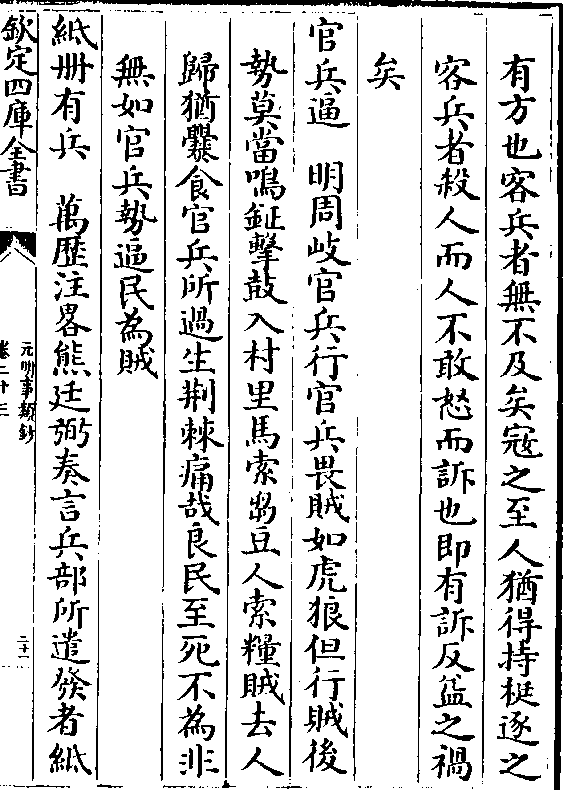 有方也客兵者無不及矣寇之至人猶得持梃逐之
客兵者殺人而人不敢怒而訴也即有訴反益之禍
矣
官兵逼　明周岐官兵行官兵畏賊如虎狼但行賊後
勢莫當鳴鉦擊鼓入村里馬索芻豆人索糧賊去人
歸猶爨食官兵所過生荆棘痛哉良民至死不為非
無如官兵勢逼民為賊
紙册有兵　萬歷注畧熊廷弼奏言兵部所遣發者紙
欽定四庫全書
元明事類鈔
卷二十三
二十一